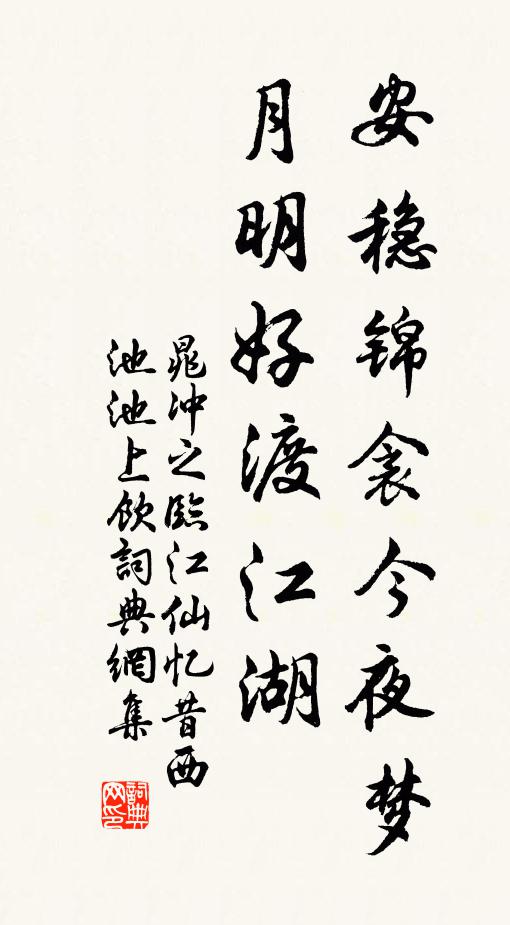 安稳锦衾今夜梦
月明好渡江湖
晁冲之臨江仙忆昔西
池池上飲詞典網集
詞典网印